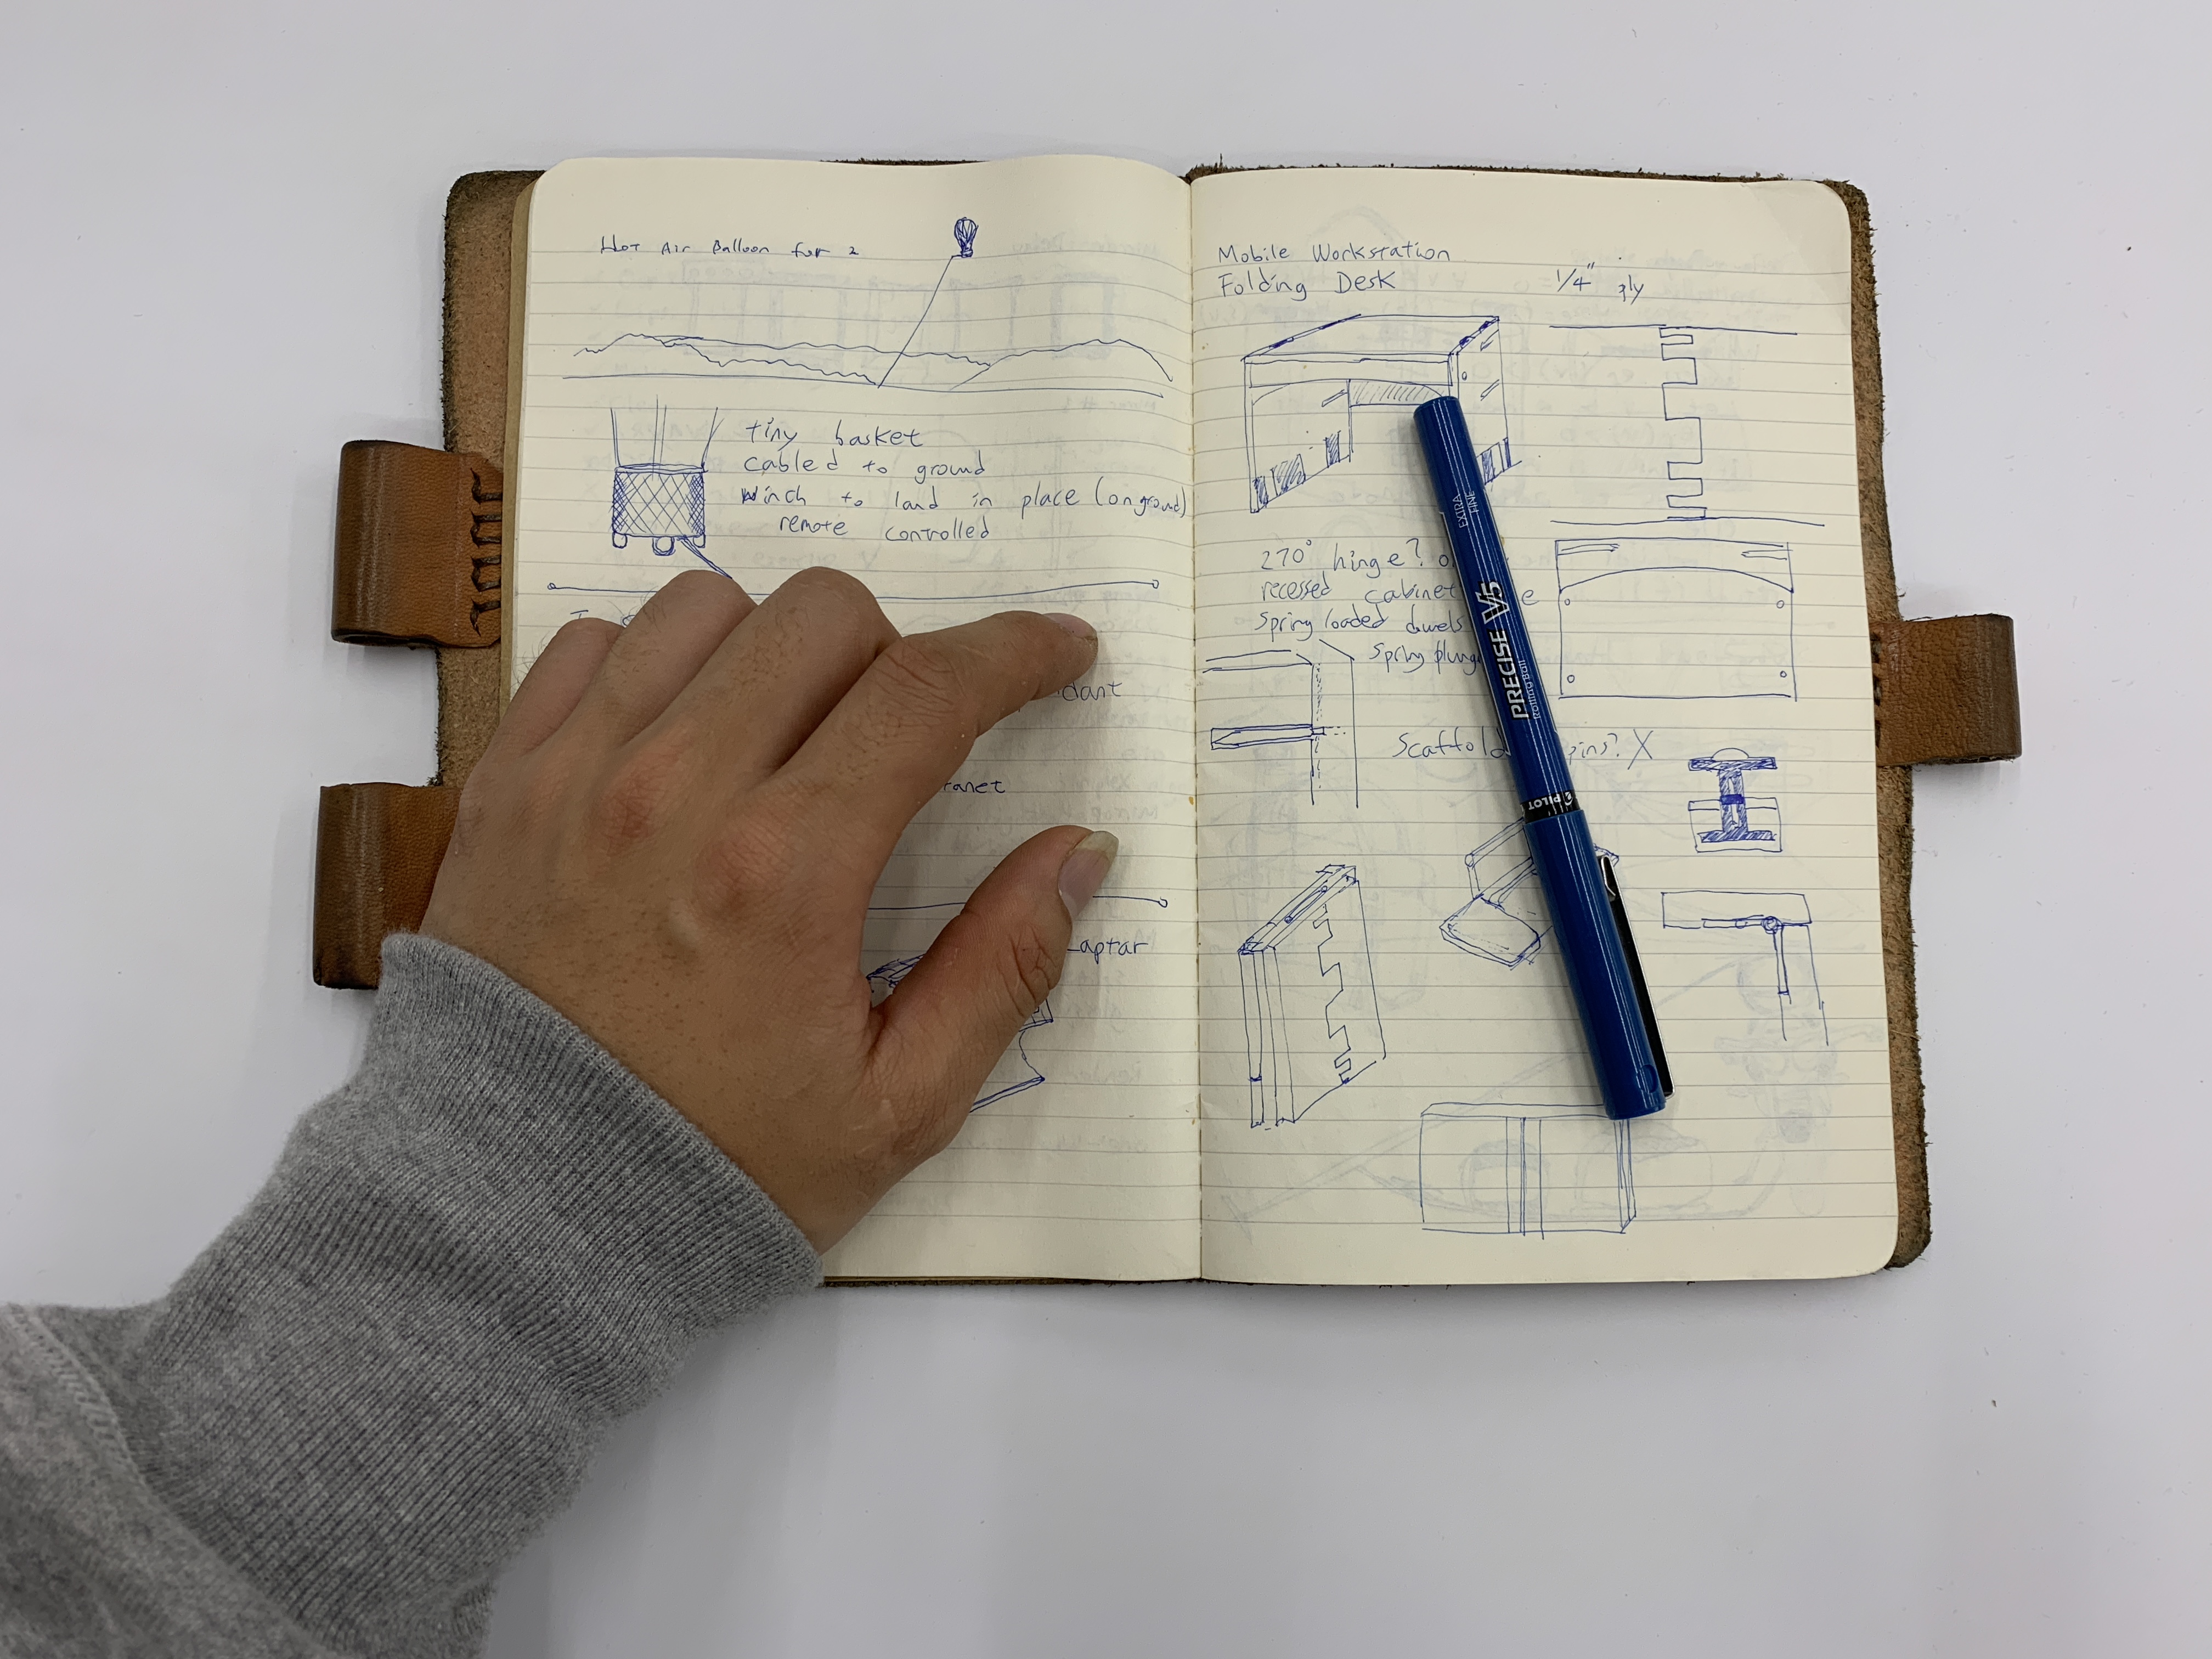 Hot Air Balloon for 2
tiny basket
cabled to ground
winch to land in place (on ground)
remote controlled
dant
anet
aptar
Mobile Workstation
Folding Desk
1/4" ply
270° hinge? o
recessed cabinet e
Spring loaded dowels
Spring plung
Scaffold pins? X
EXTRA
FINE
PRECISE V5
Rolling Ball
PILOT